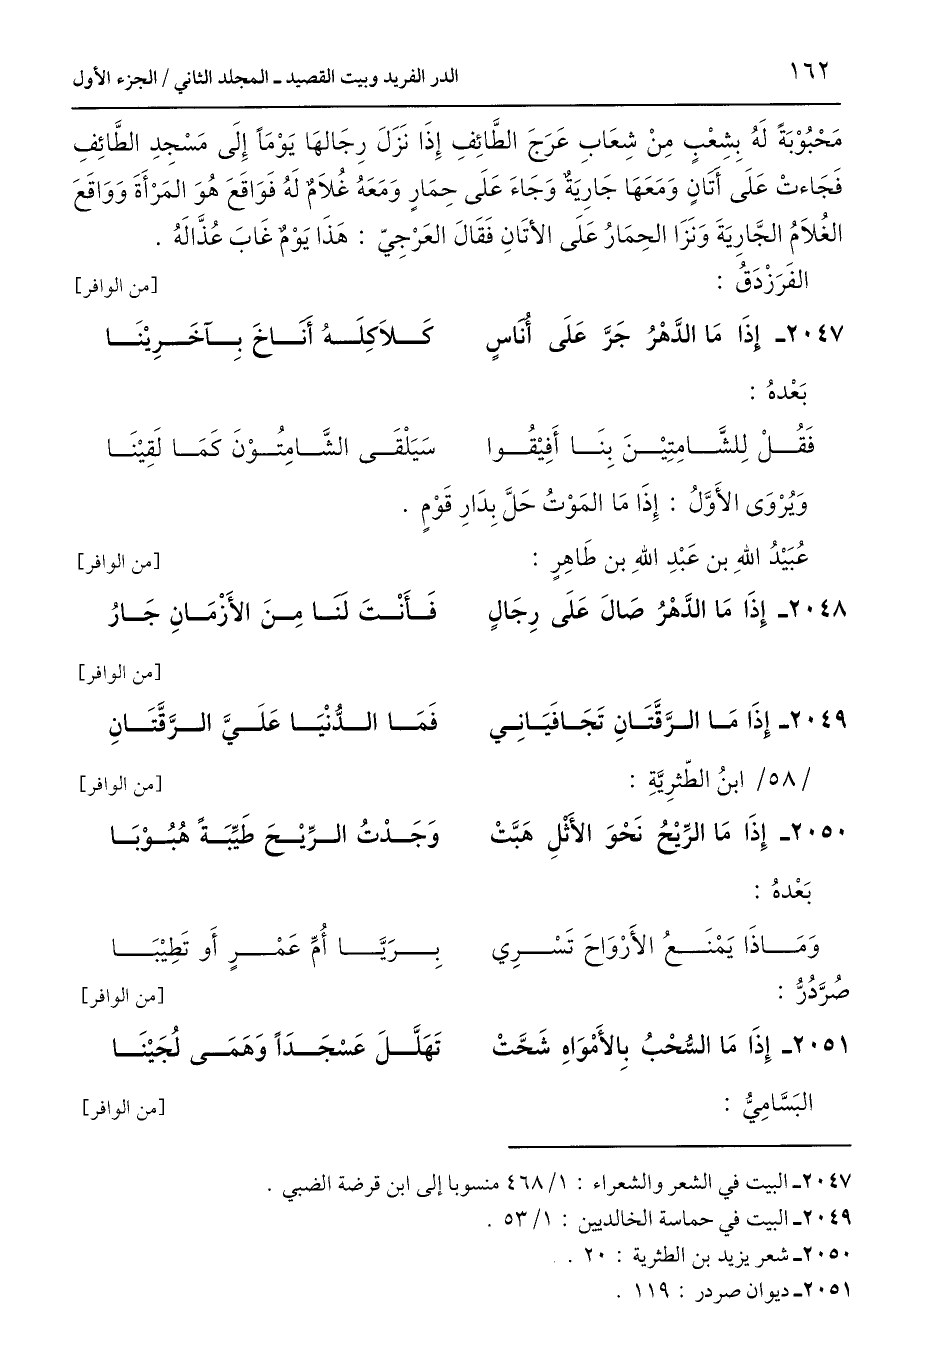 ١٦٢ الدر الفريد وبيت القصيد ـ المجلد الثاني / الجزء الأول
مَحْبُوْبَةً لَهُ بِشعْبٍ مِنْ شِعَابِ عَرَجَ الطَّائِفِ إِذَا نَزَلَ رِجَالهَا يَوْمَاً إِلَى مَسْجِدِ الطَّائِفِ
فَجَاءتْ عَلَى أَتَانٍ وَمَعَهَا جَارِيَةٌ وَجَاءَ عَلَى حِمَارٍ وَمَعَهُ غُلاَمٌ لَهُ فَوَاقَعَ هُوَ المَرْأَةَ وَوَاقَعَ
الغُلاَمُ الجَّارِيَةَ وَنَزَا الحِمَارُ عَلَى الأتَانِ فَقَالَ العَرْجِيّ : هَذَا يَوْمٌ غَابَ عُذَّالهُ .
الفَرَزْدَقُ : [من الوافر]
٢٠٤٧ـ إِذَا مَا الدَّهْرُ جَرَّ عَلَى أُنَاسٍ كَلاَكِلَهُ أَنَاخَ بِآخَرِيْنَا
بَعْدهُ :
فَقُلْ لِلشَّامِتِيْنَ بِنَا أَفِيْقُوا سَيَلْقَى الشَّامِتُوْنَ كَمَا لَقِيْنَا
وَيُرْوَى الأَوَّلُ : إِذَا مَا المَوْتُ حَلَّ بِدَارِ قَوْمٍ .
عُبَيْدُ اللهِ بن عَبْدِ اللهِ بن طَاهِرٍ : [من الوافر]
٢٠٤٨ـ إِذَا مَا الدَّهْرُ صَالَ عَلَى رِجَالٍ فَأَنْتَ لَنَا مِنَ الأَزْمَانِ جَارُ
[من الوافر]
٢٠٤٩ـ إِذَا مَا الرَّقَّتَانِ تَجَافَيَانِي فَمَا الدُّنْيَا عَلَيَّ الرَّقَّتَانِ
/٥٨/ ابنُ الطّثرِيَّةِ : [من الوافر]
٢٠٥٠ـ إِذَا مَا الرِّيْحُ نَحْوَ الأَثْلِ هَبَّتْ وَجَدْتُ الرِّيْحَ طَيِّبَةً هُبُوْبَا
بَعْدهُ :
وَمَاذَا يَمْنَعُ الأَرْوَاحَ تَسْرِي بِرَيَّا أُمِّ عَمْرٍ أو تَطِيْبَا
صُرَّدُرُّ : [من الوافر]
٢٠٥١ـ إِذَا مَا السُّحْبُ بِالأَمْوَاهِ شَحَّتْ تَهَلَّلَ عَسْجَدَاً وَهَمَى لُجَيْنَا
البَسَّامِيُّ : [من الوافر]
٢٠٤٧ـ البيت في الشعر والشعراء : ٤٦٨/١ منسوبا إلى ابن قرضة الضبي .
٢٠٤٩ـ البيت في حماسة الخالديين : ٥٣/١ .
٢٠٥٠ـ شعر يزيد بن الطثرية : ٢٠ .
٢٠٥١ـ ديوان صردر : ١١٩ .